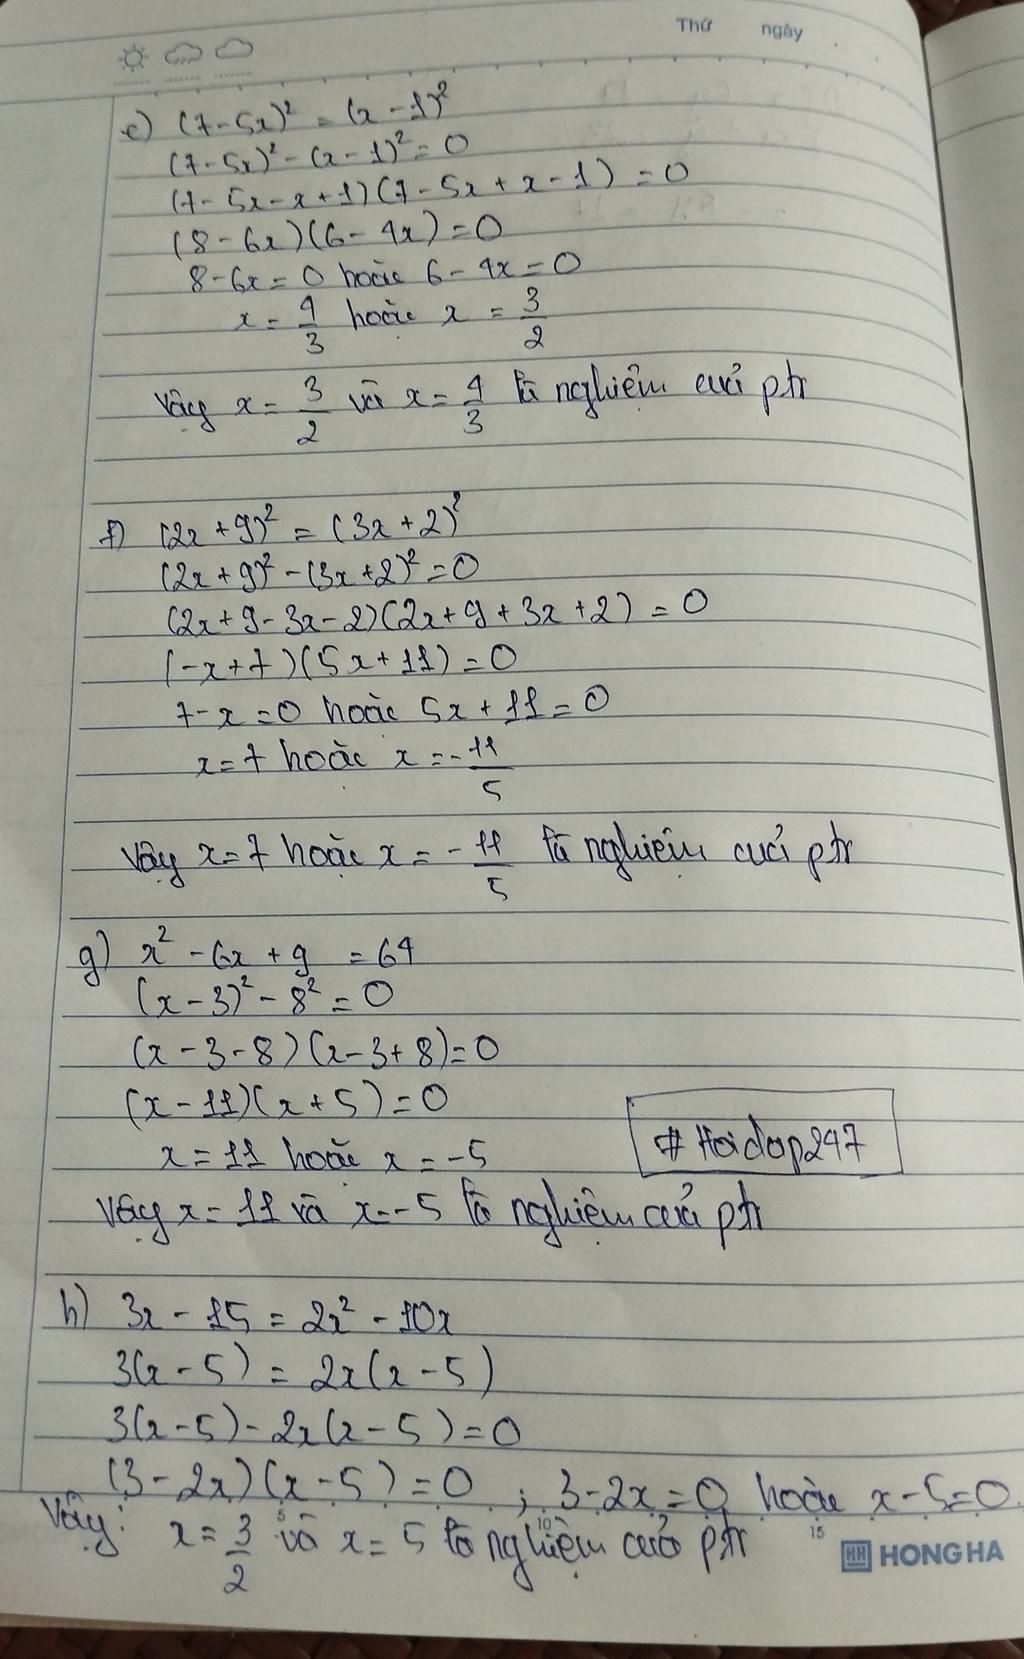 Thứ ngày
e) (7-5x)² = (x-1)²
(7-5x)² - (x-1)² = 0
(7-5x-x+1)(7-5x+x-1) = 0
(8-6x)(6-4x) = 0
8-6x = 0 hoặc 6-4x = 0
x = 4/3 hoặc x = 3/2
Vậy x = 3/2 và x = 4/3 là nghiệm của ptr
f) (2x+9)² = (3x+2)²
(2x+9)² - (3x+2)² = 0
(2x+9-3x-2)(2x+9+3x+2) = 0
(-x+7)(5x+11) = 0
7-x = 0 hoặc 5x+11 = 0
x = 7 hoặc x = -11/5
Vậy x = 7 hoặc x = -11/5 là nghiệm của ptr
g) x² - 6x + 9 = 64
(x-3)² - 8² = 0
(x-3-8)(x-3+8) = 0
(x-11)(x+5) = 0
x = 11 hoặc x = -5
#Hoidap247
Vậy x = 11 và x = -5 là nghiệm của ptr
h) 3x - 15 = 2x² - 10x
3(x-5) = 2x(x-5)
3(x-5) - 2x(x-5) = 0
(3-2x)(x-5) = 0 ; 3-2x = 0 hoặc x-5 = 0
Vậy: x = 3/2 và x = 5 là nghiệm của ptr
5 10 15
HONG HA